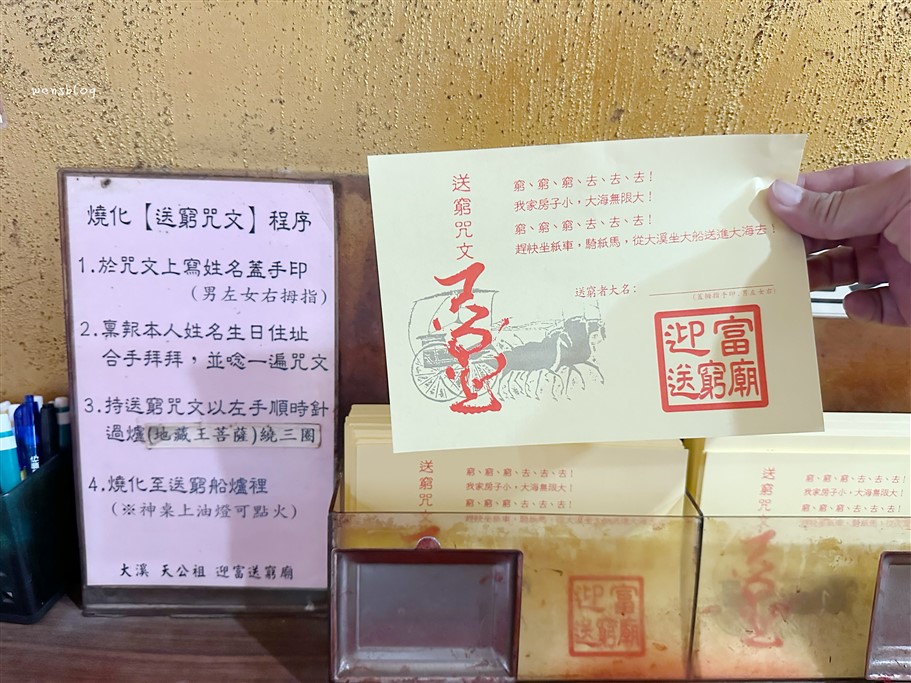 wensblog
燒化【送窮咒文】程序
1.於咒文上寫姓名蓋手印
(男左女右拇指)
2.稟報本人姓名生日住址
合手拜拜，並唸一遍咒文
3.持送窮咒文以左手順時針
過爐(地藏王菩薩)繞三圈
4.燒化至送窮船爐裡
(※神桌上油燈可點火)
大溪 天公祖 迎富送窮廟
送窮咒文
窮、窮、窮、去、去、去！
我家房子小，大海無限大！
窮、窮、窮、去、去、去！
趕快坐紙車，騎紙馬，從大溪坐大船送進大海去！
送窮者大名：
(蓋拇指手印.男左女右)
迎富
送窮廟
送窮咒文
窮、窮、窮、去、去、去！
我家房子小，大海無限大！
窮、窮、窮、去、去、去！
趕快坐紙車，騎紙馬，從大溪坐大船送進大海去！
迎富
送窮廟
送窮咒文
窮、窮、窮、去、去、
我家房子小，大海無限
窮、窮、窮、去、去、